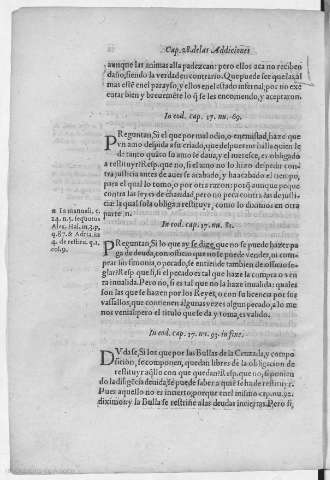 Cap. 28. de las Addiciones
aunque las animas alla padezcan: pero ellos aca no reciben
daño, siendo la verdad en contrario. Que puede ser que las al
mas esté en el parayso, y ellos en el estado infernal, por no exe
cutar bien y breuemēte lo q̃ se les encomendo, y aceptaron.
In eod. cap. 17. nu. 69.
PReguntan, Si el que por mal odio, o enemistad, haze que
vn amo despida a su criado, que despues no halla quien le
de tanto quāto su amo le daua, y el meresce, es obligado
a restituyr? Resp. que no, sino quando lo hizo despedir con-
tra justicia antes de auerse acabado, y ha acabado el tiempo,
para el qual lo tomo, o por otra razon: porq̃ aunque peque
contra las leyes de charidad, pero no peca contra las de justi-
cia la qual sola obliga a restituyr, como lo diximos en otra
parte .n.
n In manuali, c.
24. n. 5. sequutus
Alex. Hal. in 3. p.
q. 87. & Adria. in
4. de restitu. q. 1.
col. 9.
In eod. cap. 17. nu. 81.
PReguntan, Si lo que ay se dize, que no se puede hazer pa-
ga de deuda, con officio que no se puede vender, ni com
prar sin simonia, o pecado, se entiende tambien de officio se-
glar? Resp. que si, si el pecado es tal que haze la compra o ven
ta inualida. Pero no, si es tal que no la haze inualida: quales
son las que se hazen por los Reyes, o con su licencia por sus
vassallos, que contienen algunas vezes algun pecado, a lo me
nos venial, pero el titulo que se da y toma, es valido.
In eod. cap. 17. nu. 93. in fine.
DVdase, Si los que por las Bullas de la Cruzada, y compo
sición, se componen, quedan libres de la obligacion de
restituyr aq̃llo con que quedan? Resp. que no, si ponien
do la diligēcia deuida, se puede saber a quiē se ha de restituyr.
Pues aquello no es incierto, porque en el mismo cap. nu. 92.
diximos, y la Bulla se restriñe a las deudas inciertas. Pero si,